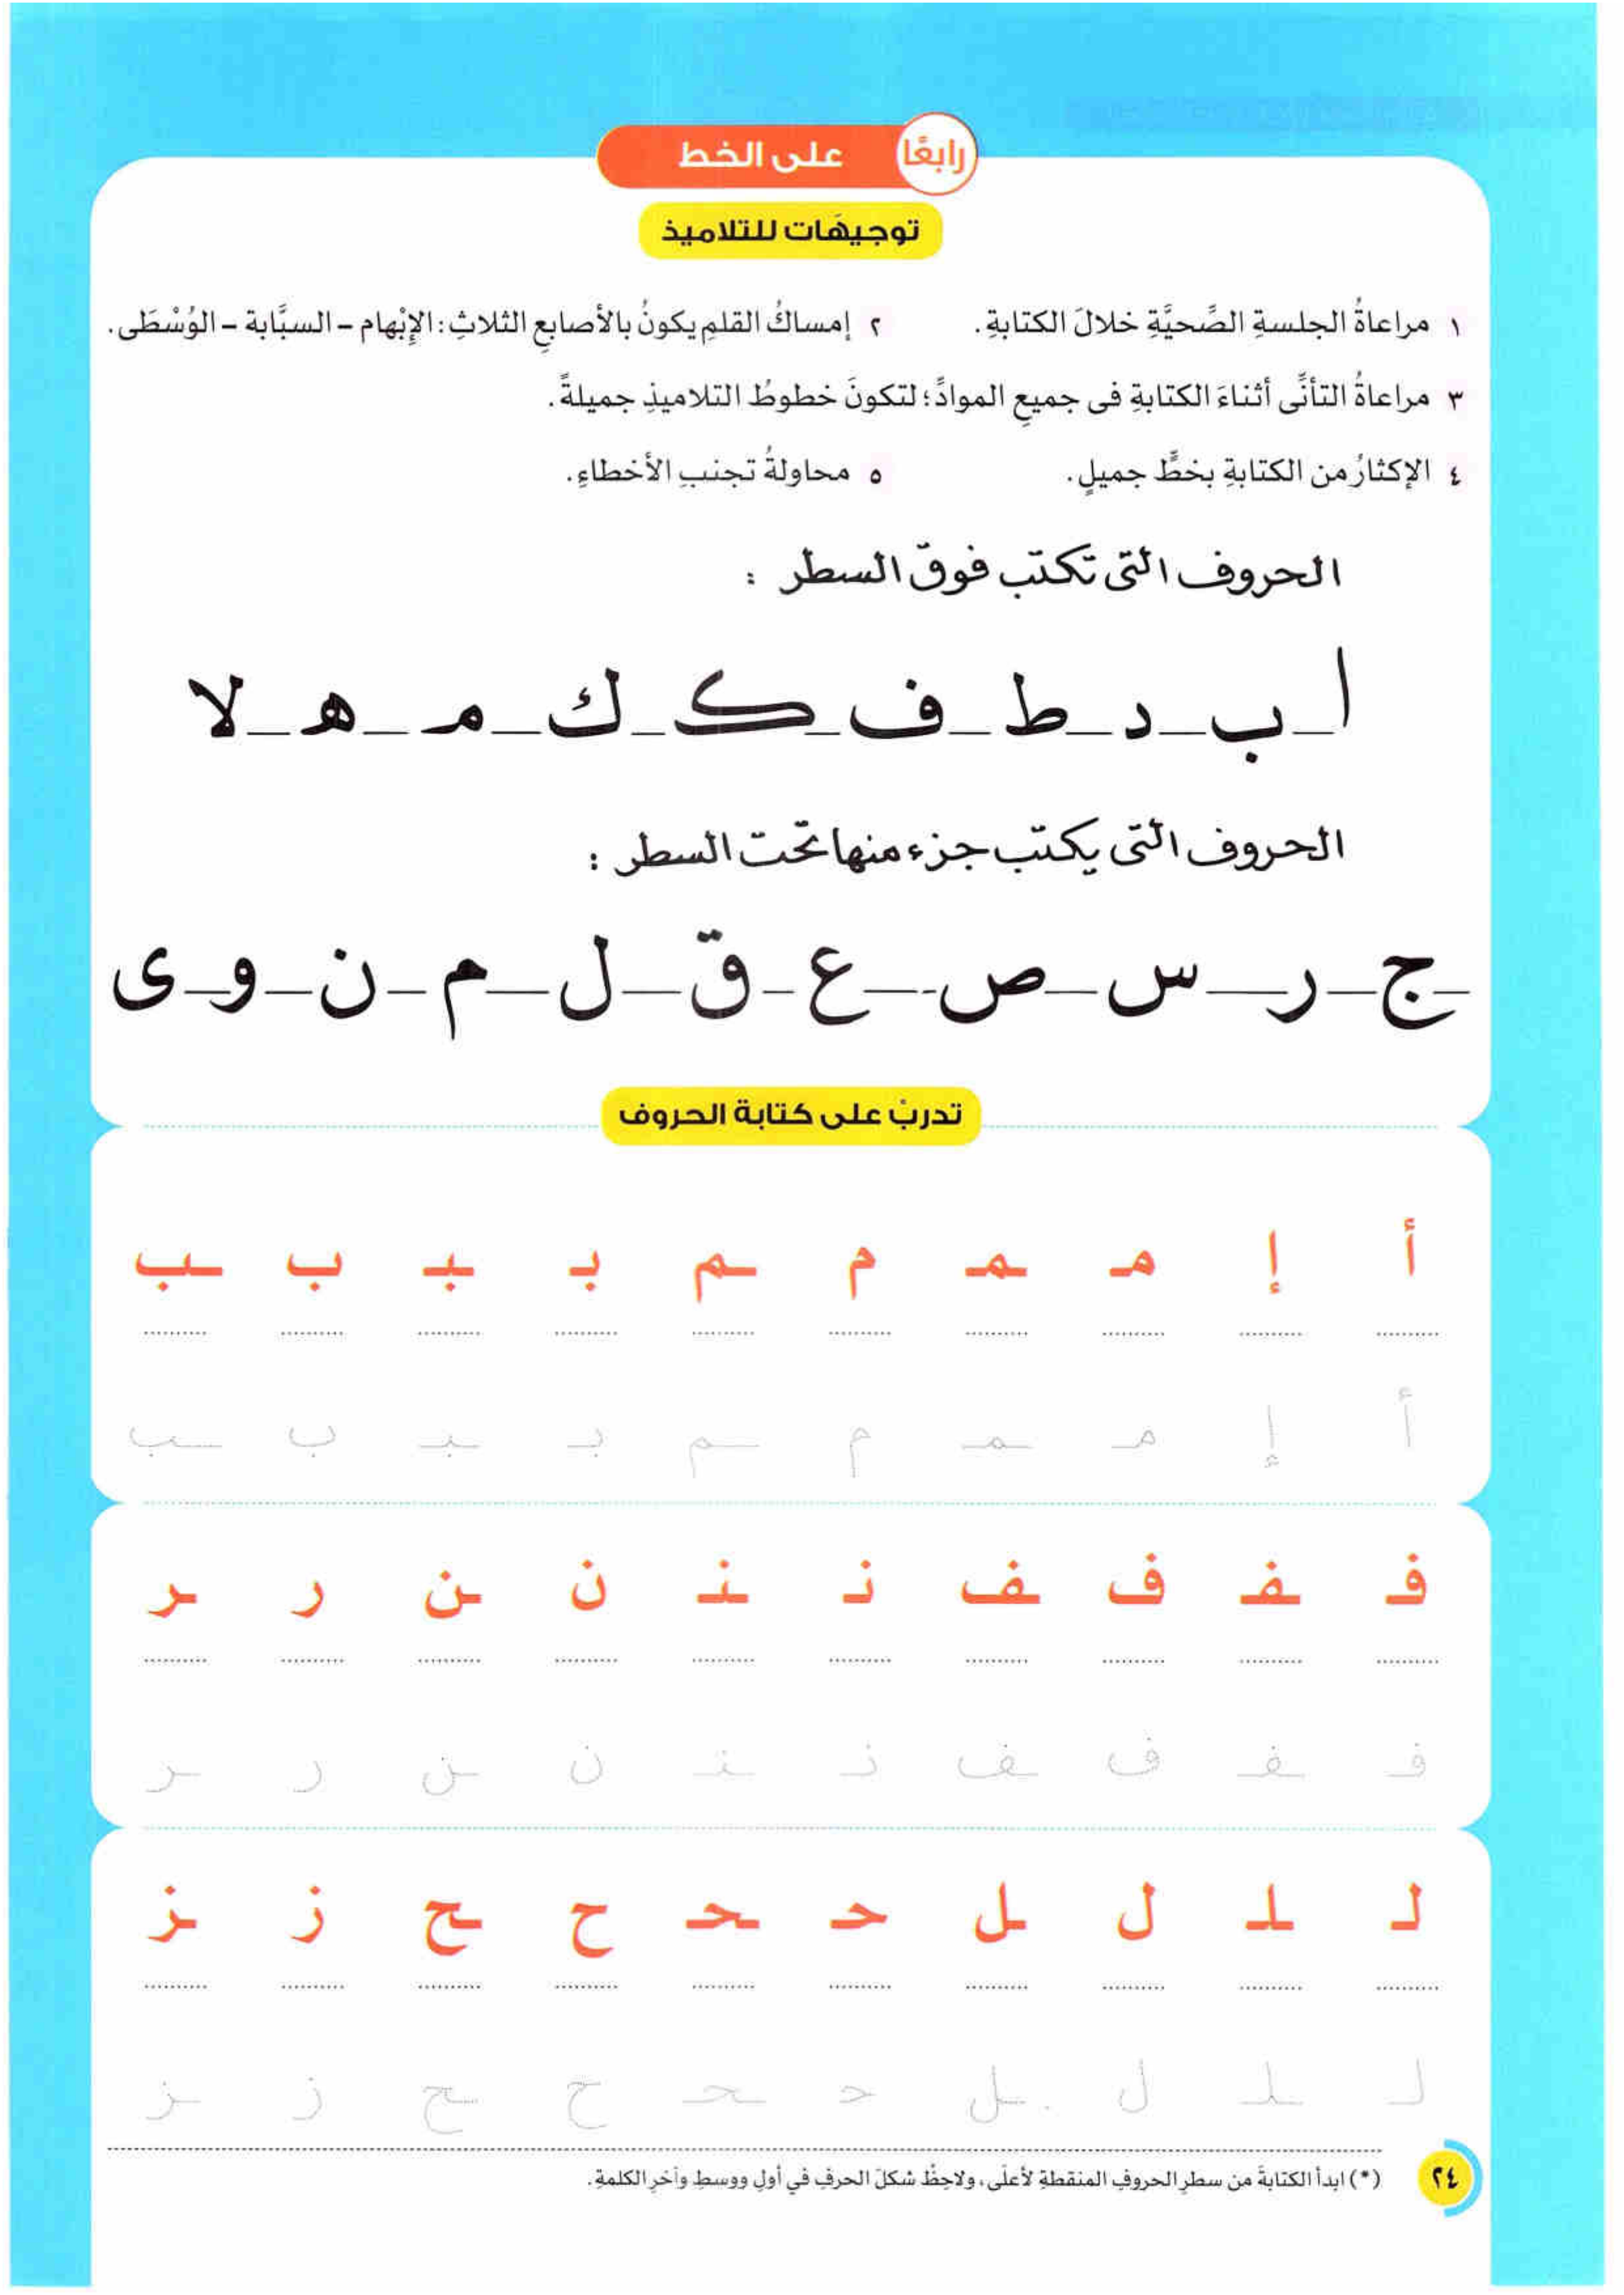 رابعًا على الخط
توجيهَات للتلاميذ
١ مراعاةُ الجلسةِ الصِّحيَّةِ خلالَ الكتابةِ. ٢ إمساكُ القلمِ يكونُ بالأصابعِ الثلاثِ: الإِبْهام – السبَّابة – الوُسْطَى.
٣ مراعاةُ التأنِّى أثناءَ الكتابةِ فى جميعِ الموادِّ؛ لتكونَ خطوطُ التلاميذِ جميلةً.
٤ الإكثارُ من الكتابةِ بخطٍّ جميلٍ. ٥ محاولةُ تجنبِ الأخطاءِ.
الحروف التى تكتب فوق السطر :
ا ب د ط ف ک ك مـ هـ لا
الحروف التى يكتب جزء منها تحت السطر :
ج ر س ص ع ق ل م ن و ى
تدربْ على كتابة الحروف
أ إ مـ ـمـ م ـم بـ ـبـ ب ـب
أ إ مـ ـمـ م ـم بـ ـبـ ب ـب
فـ ـفـ ف ـف نـ ـنـ ن ـن ر ـر
فـ ـفـ ف ـف نـ ـنـ ن ـن ر ـر
لـ ـلـ ل ـل حـ ـحـ ح ـح ز ـز
لـ ـلـ ل ـل حـ ـحـ ح ـح ز ـز
(*) ابدأ الكتابةَ من سطرِ الحروفِ المنقطةِ لأعلَى، ولاحِظْ شكلَ الحرفِ في أولِ ووسطِ وآخرِ الكلمةِ.
٢٤